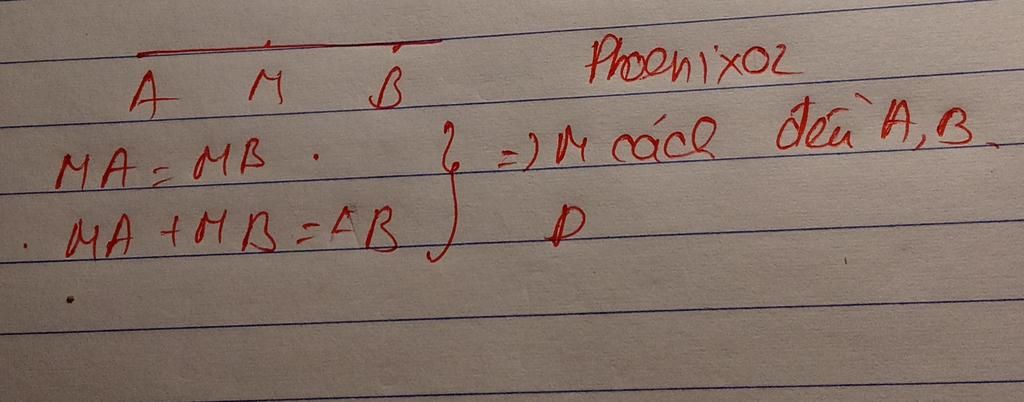 A M B
Phoenix02
MA = MB . } => M cách đều A, B.
. MA + MB = AB
D